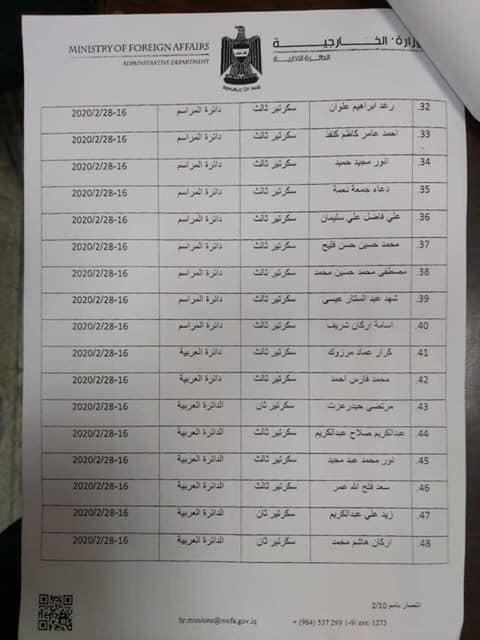 MINISTRY OF FOREIGN AFFAIRS
وزارة الخارجية
ADMINISTRATIVE DEPARTMENT
الدائرة الادارية
REPUBLIC OF IRAQ
32. رغد ابراهيم علوان سكرتير ثالث دائرة المراسم 2020/2/28-16
33. احمد عامر كاظم سكرتير ثالث دائرة المراسم 2020/2/28-16
34. انور مجيد حميد سكرتير ثالث دائرة المراسم 2020/2/28-16
35. دعاء جمعة نعمة سكرتير ثالث دائرة المراسم 2020/2/28-16
36. علي فاضل علي سليمان سكرتير ثالث دائرة المراسم 2020/2/28-16
37. محمد حسين حسن فليح سكرتير ثالث دائرة المراسم 2020/2/28-16
38. مصطفى محمد حسين محمد سكرتير ثالث دائرة المراسم 2020/2/28-16
39. شهد عبد الستار عيسى سكرتير ثالث دائرة المراسم 2020/2/28-16
40. اسامة اركان شريف سكرتير ثالث دائرة المراسم 2020/2/28-16
41. كرار عماد مرزوك سكرتير ثالث دائرة العربية 2020/2/28-16
42. محمد فارس احمد سكرتير ثالث دائرة العربية 2020/2/28-16
43. مرتضى حيدر عزت سكرتير ثان الدائرة العربية 2020/2/28-16
44. عبدالكريم صلاح عبدالكريم سكرتير ثالث الدائرة العربية 2020/2/28-16
45. نور محمد عبد مجيد سكرتير ثالث الدائرة العربية 2020/2/28-16
46. سعد فتح الله عمر سكرتير ثالث الدائرة العربية 2020/2/28-16
47. زيد علي عبدالكريم سكرتير ثان الدائرة العربية 2020/2/28-16
48. اركان هاشم محمد سكرتير ثان الدائرة العربية 2020/2/28-16
انتصار باسم 2/10
hr.missions@mofa.gov.iq
+ (964) 537 299 1-9/ ext. 1273